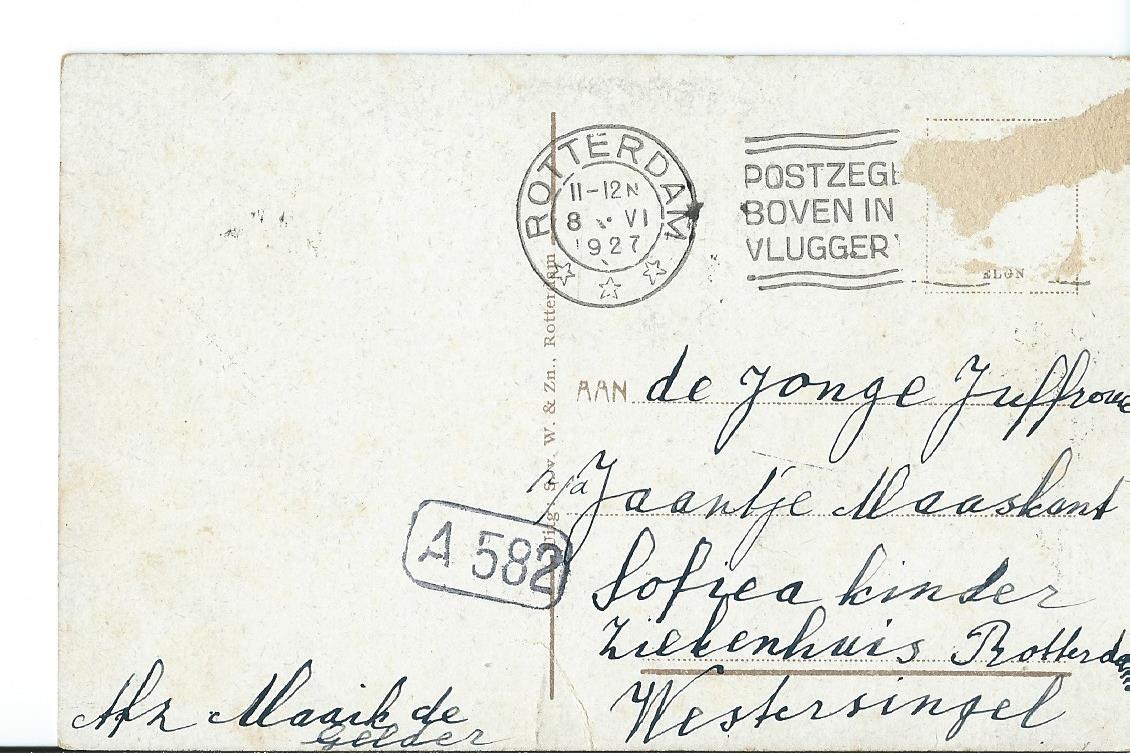 ROTTERDAM
11-12N
8 VI
1927
POSTZEGE
BOVEN IN
VLUGGER
AAN de Jonge Juffrouw
Jaantje Maaskant
Sofiea kinder
Ziekenhuis Rotterdam
Westersingel
A 582
Afz Maaik de
Gelder
W. & Zn., Rotterdam